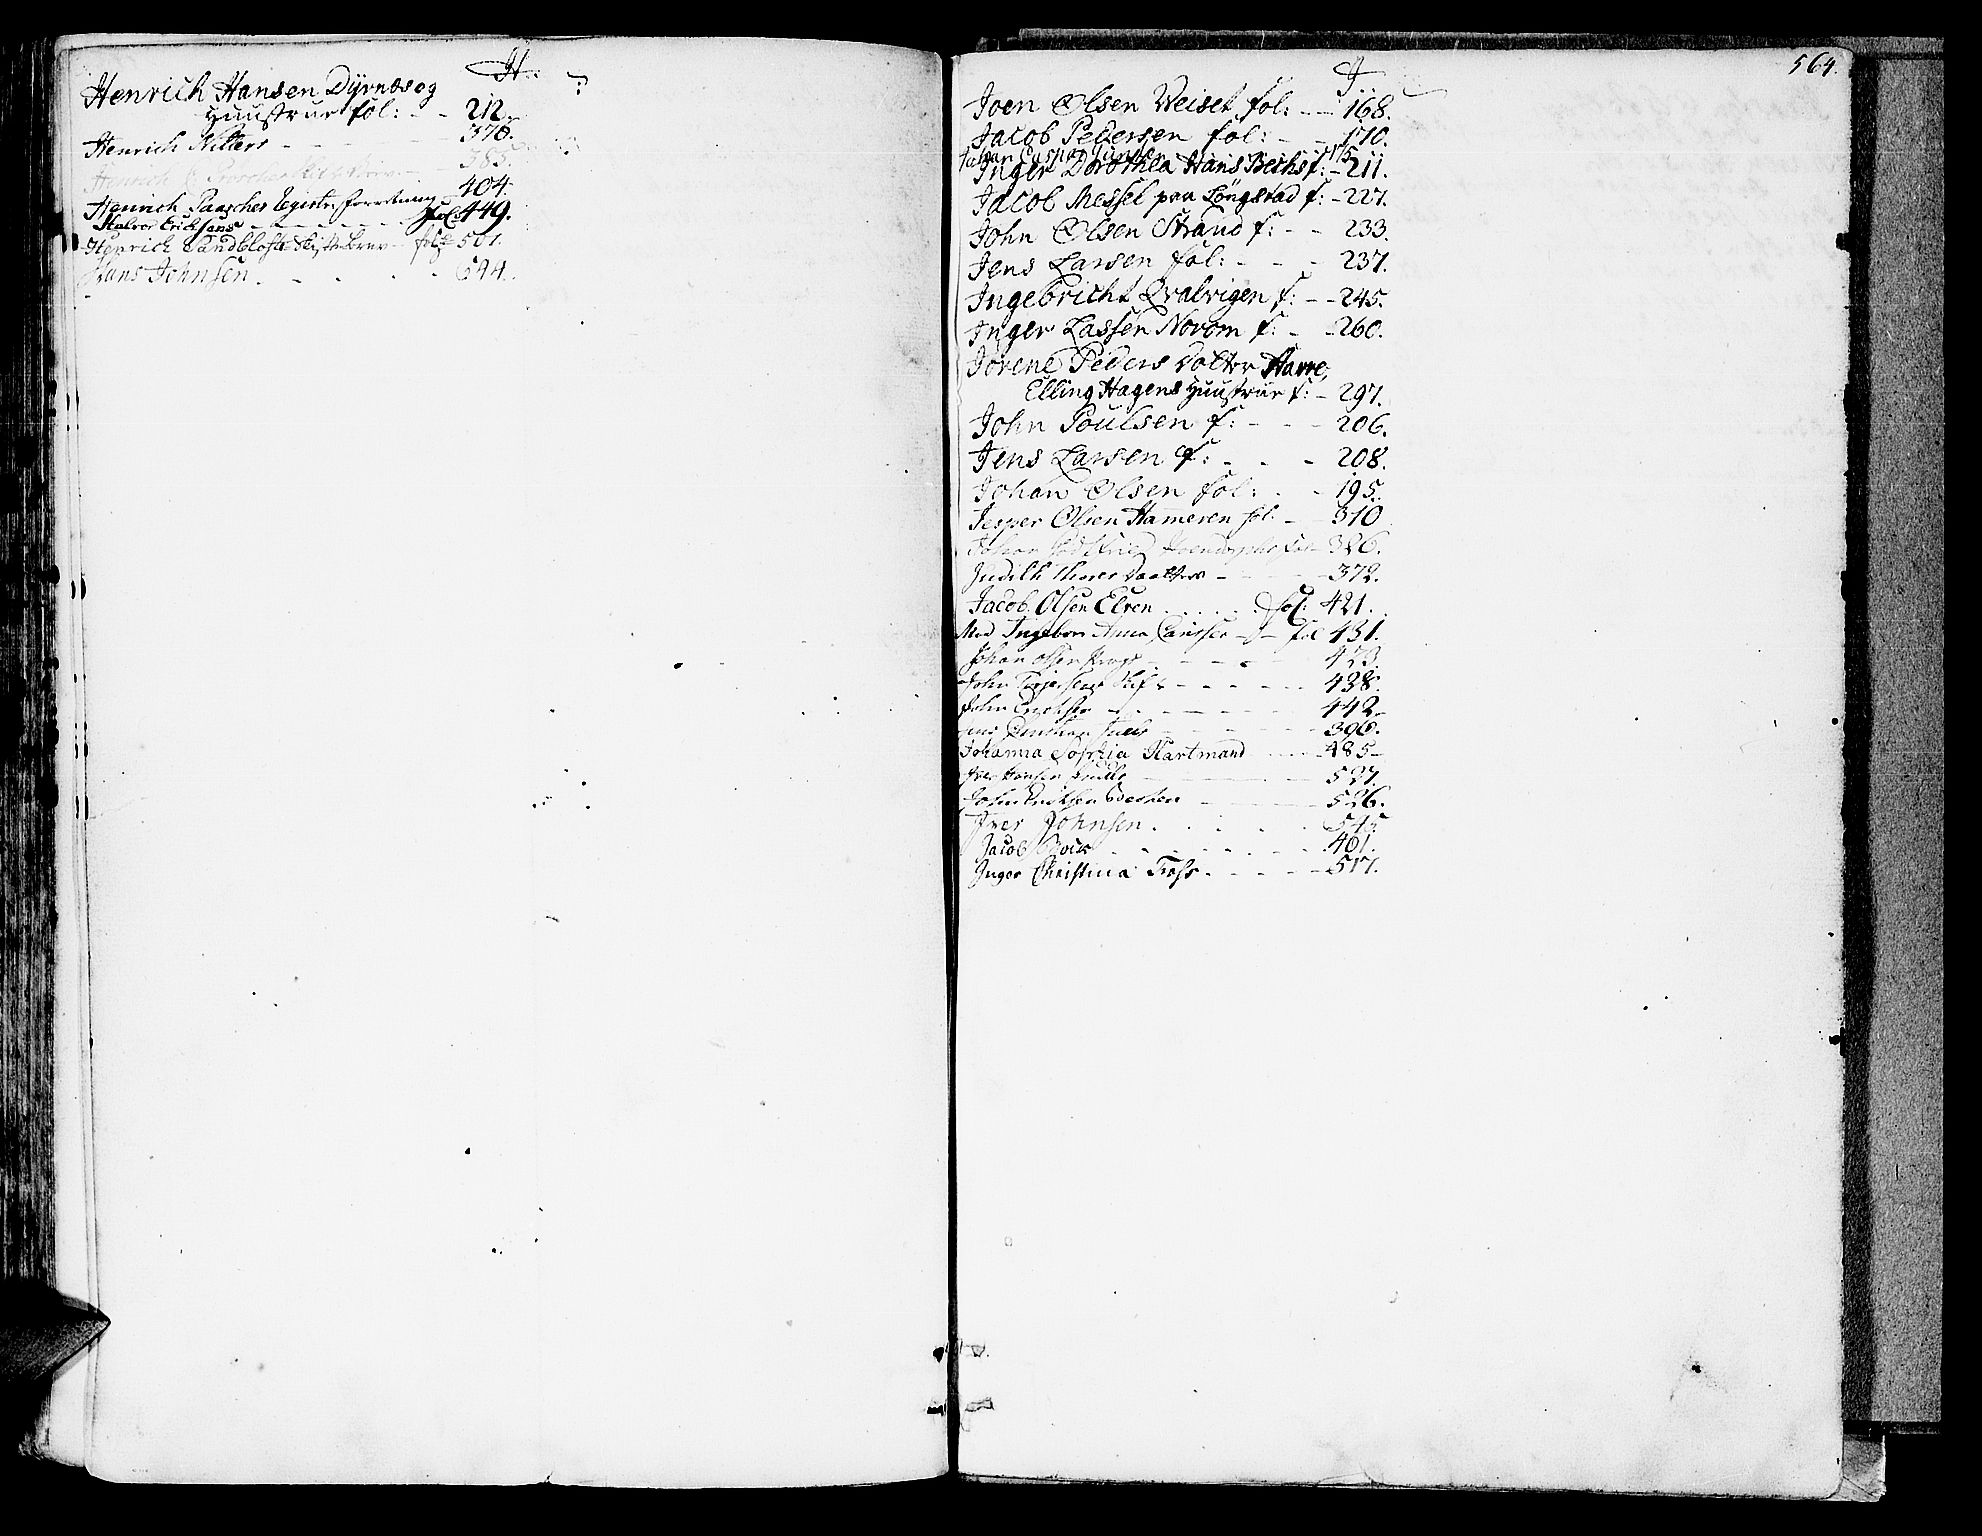 H.
Henrich Hansen Dÿrnæs og
Huustrue fol: - - 212.
Henrich Nillers - - - 370.
Henrich 385.
Henrich Paasches Regist: forretning 404.
Halvor Erichsens - - - fol: 449.
Henrich Sandblost Skifte brev - fol: 501.
Hans Johnsen . - . - 544.
564.
J
Joen Olsen Weiset fol: - - 168.
Jacob Pedersen fol: - - 170.
Johan Caspar 175
Inger Dorothea Hans Beches f: - 211.
Jacob Messel paa Löngstad f: - 227.
John Olsen Strand f: - - 233.
Jens Larsen fol: - - - 237.
Ingebricht Qvalvigen f: - - 245.
Inger Lassen Norom f: - - 260.
Jorene Peders Dotter Harre,
Elling Hagens Huustrue f: - 297.
John Poulsen f: - - - 206.
Jens Larsen f: - - - 208.
Johan Olsen fol: - - 195.
Jesper Olsen Hameren fol: - 310
Johan Godtfried fol - 326.
Judith Thores Daatter - - - 372.
Jacob Olsen Elven . . . . . fol: 421.
Mad Ingebor Anna - - fol 431.
Johan Olsen - - - - 423.
John - - - - - 438.
John Erichsen - - - - 442.
Jens - - - 396.
Johanna Sophia Hartmand - - - 485.
Iver Hansen - - - 527.
John - - - 526.
Iver Johnsen . . . . . 545
Jacob Bock - - - - - 461.
Inger Christina Tross - - - - 517.